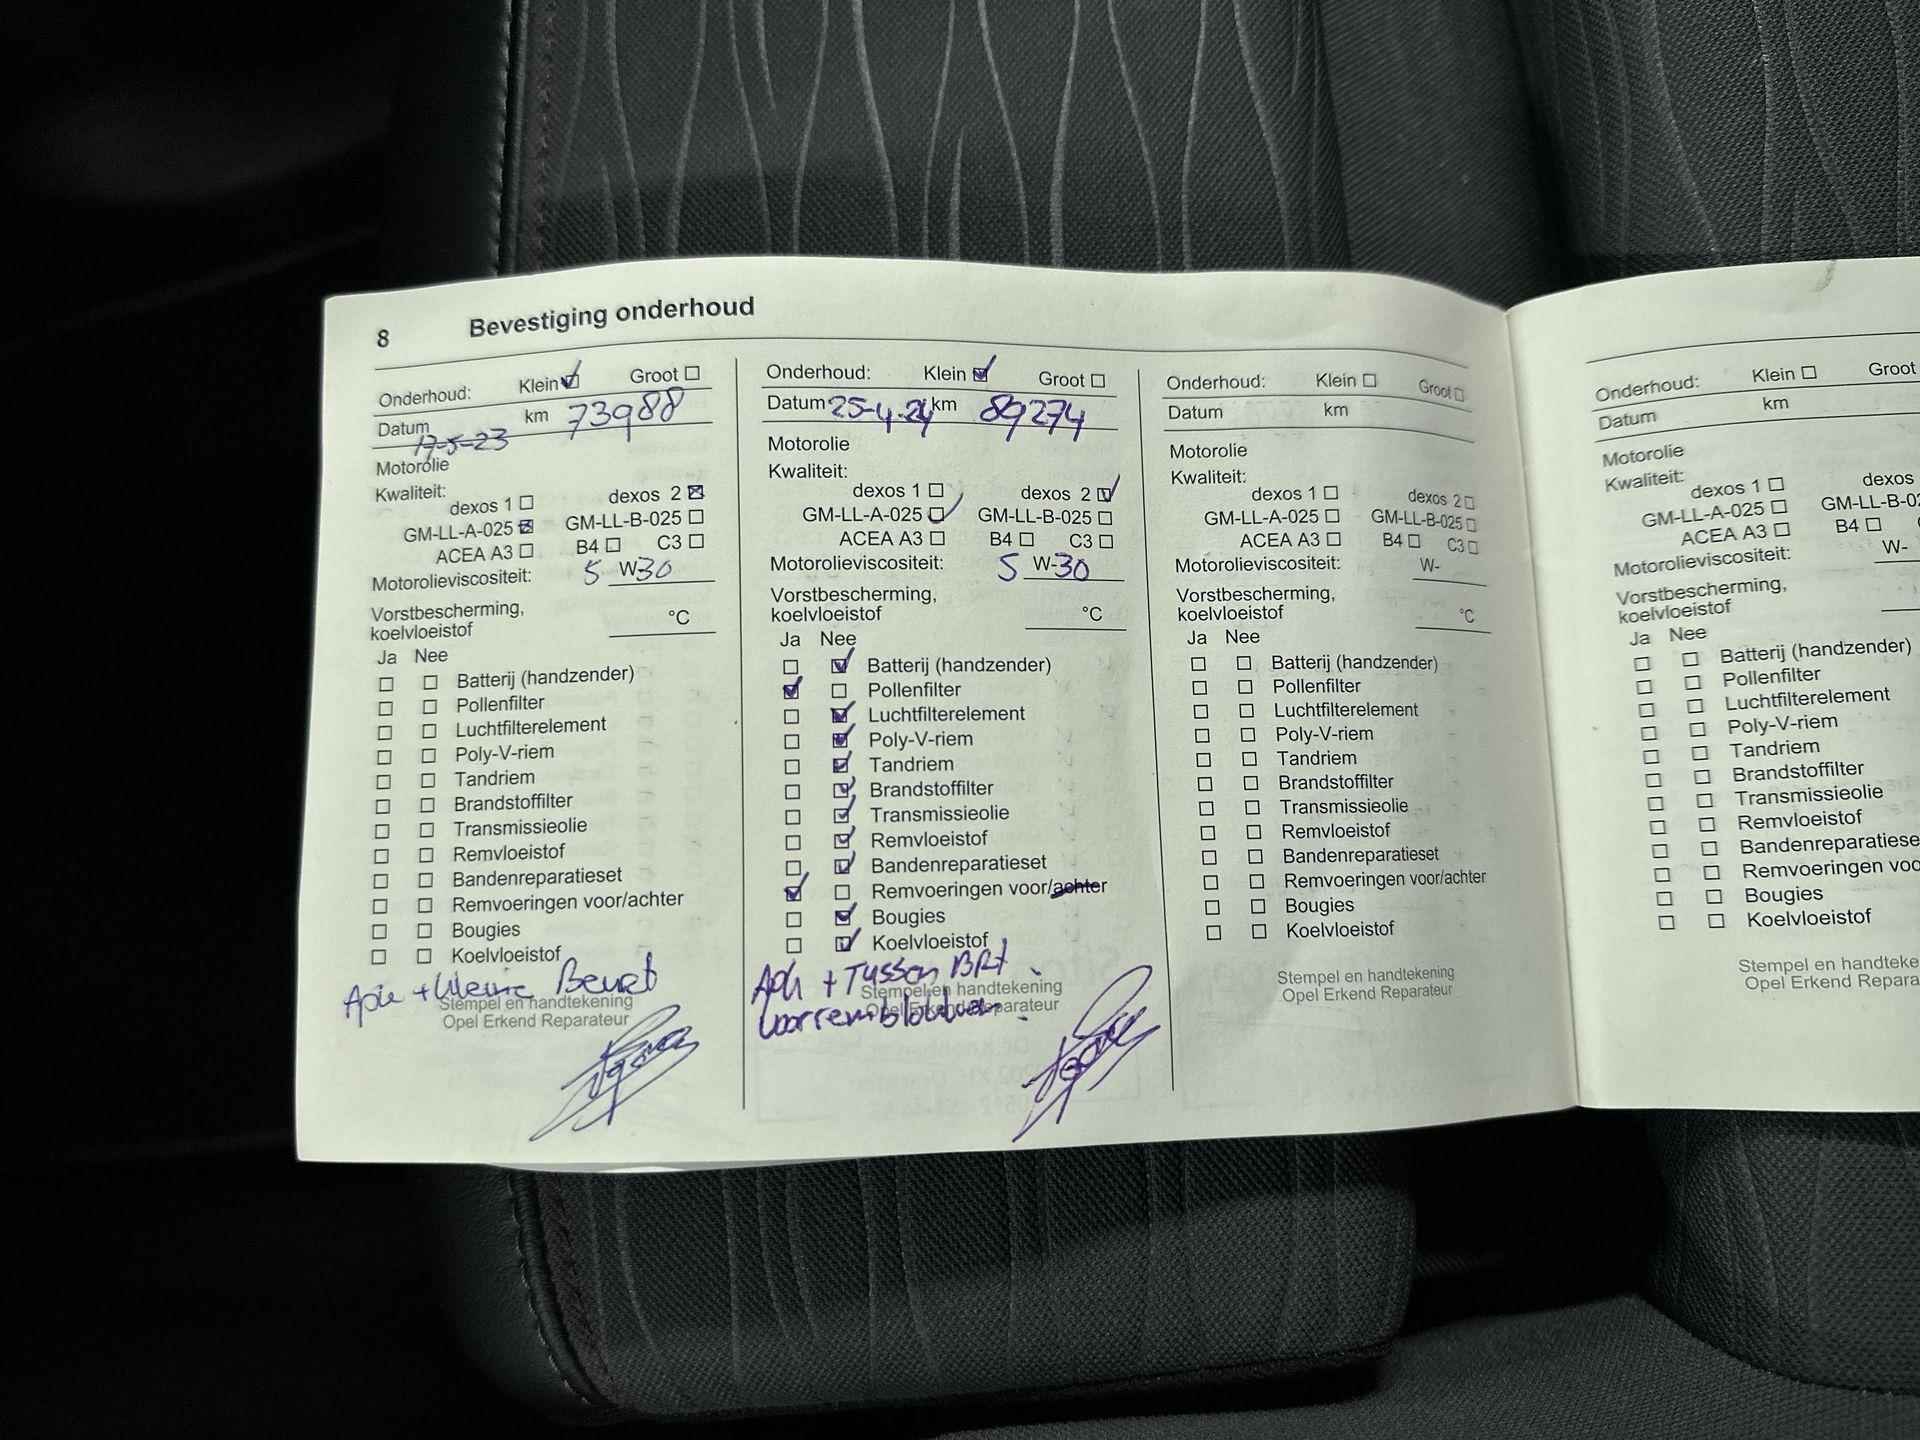 8 Bevestiging onderhoud
Onderhoud: Klein Groot
Datum 17-5-23 km 73988
Motorolie
Kwaliteit:
dexos 1 dexos 2
GM-LL-A-025 GM-LL-B-025
ACEA A3 B4 C3
Motorolieviscositeit: 5 W-30
Vorstbescherming,
koelvloeistof °C
Ja Nee
Batterij (handzender)
Pollenfilter
Luchtfilterelement
Poly-V-riem
Tandriem
Brandstoffilter
Transmissieolie
Remvloeistof
Bandenreparatieset
Remvoeringen voor/achter
Bougies
Koelvloeistof
+ kleine Beurt
Stempel en handtekening
Opel Erkend Reparateur
Onderhoud: Klein Groot
Datum 25-4-24 km 89274
Motorolie
Kwaliteit:
dexos 1 dexos 2
GM-LL-A-025 GM-LL-B-025
ACEA A3 B4 C3
Motorolieviscositeit: 5 W-30
Vorstbescherming,
koelvloeistof °C
Ja Nee
Batterij (handzender)
Pollenfilter
Luchtfilterelement
Poly-V-riem
Tandriem
Brandstoffilter
Transmissieolie
Remvloeistof
Bandenreparatieset
Remvoeringen voor/achter
Bougies
Koelvloeistof
+ Tussen BRT
Stempel en handtekening
Voorremblokken
Opel Erkend Reparateur
Onderhoud: Klein Groot
Datum km
Motorolie
Kwaliteit:
dexos 1 dexos 2
GM-LL-A-025 GM-LL-B-025
ACEA A3 B4 C3
Motorolieviscositeit: W-
Vorstbescherming,
koelvloeistof °C
Ja Nee
Batterij (handzender)
Pollenfilter
Luchtfilterelement
Poly-V-riem
Tandriem
Brandstoffilter
Transmissieolie
Remvloeistof
Bandenreparatieset
Remvoeringen voor/achter
Bougies
Koelvloeistof
Stempel en handtekening
Opel Erkend Reparateur
Onderhoud: Klein Groot
Datum km
Motorolie
Kwaliteit:
dexos 1 dexos
GM-LL-A-025 GM-LL-B-02
ACEA A3 B4
Motorolieviscositeit: W-
Vorstbescherming,
koelvloeistof
Ja Nee
Batterij (handzender)
Pollenfilter
Luchtfilterelement
Poly-V-riem
Tandriem
Brandstoffilter
Transmissieolie
Remvloeistof
Bandenreparatiese
Remvoeringen voo
Bougies
Koelvloeistof
Stempel en handteke
Opel Erkend Repara